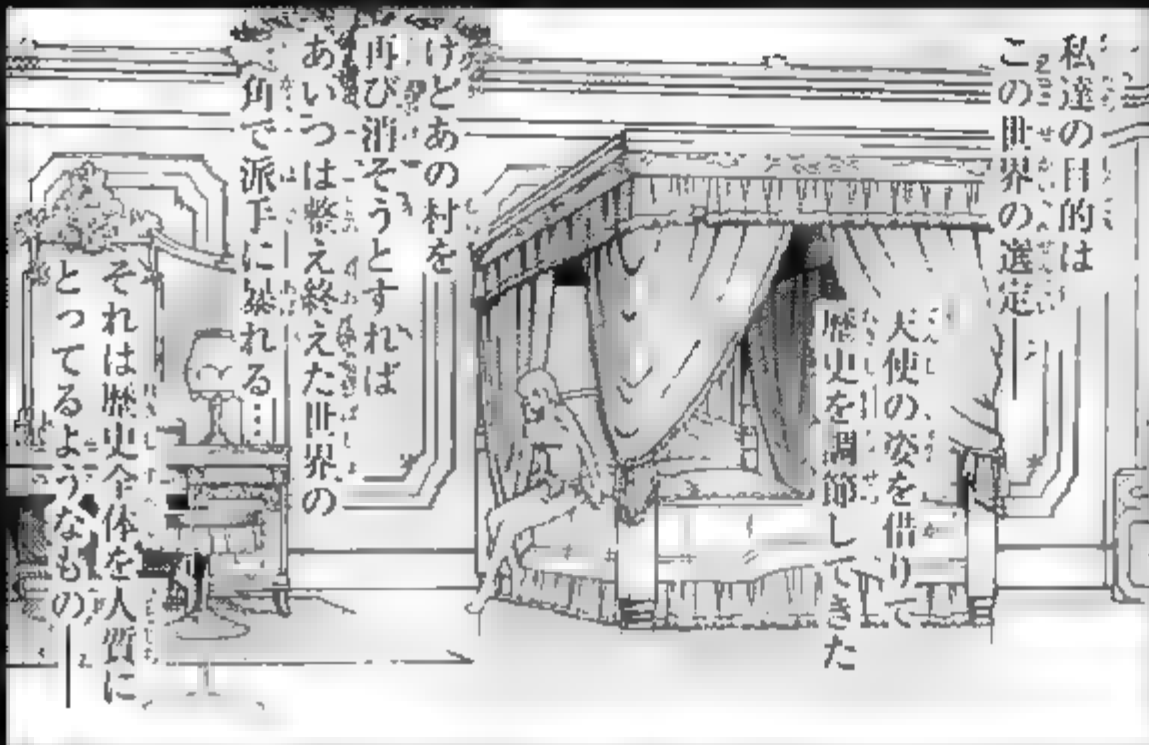 私達の目的は
この世界の選定―
天使の姿を借りて
歴史を調節してきた
けどあの村を
再び消そうとすれば
あいつは整え終えた世界の
一角で派手に暴れる…
それは歴史全体を人質に
とってるようなもの―